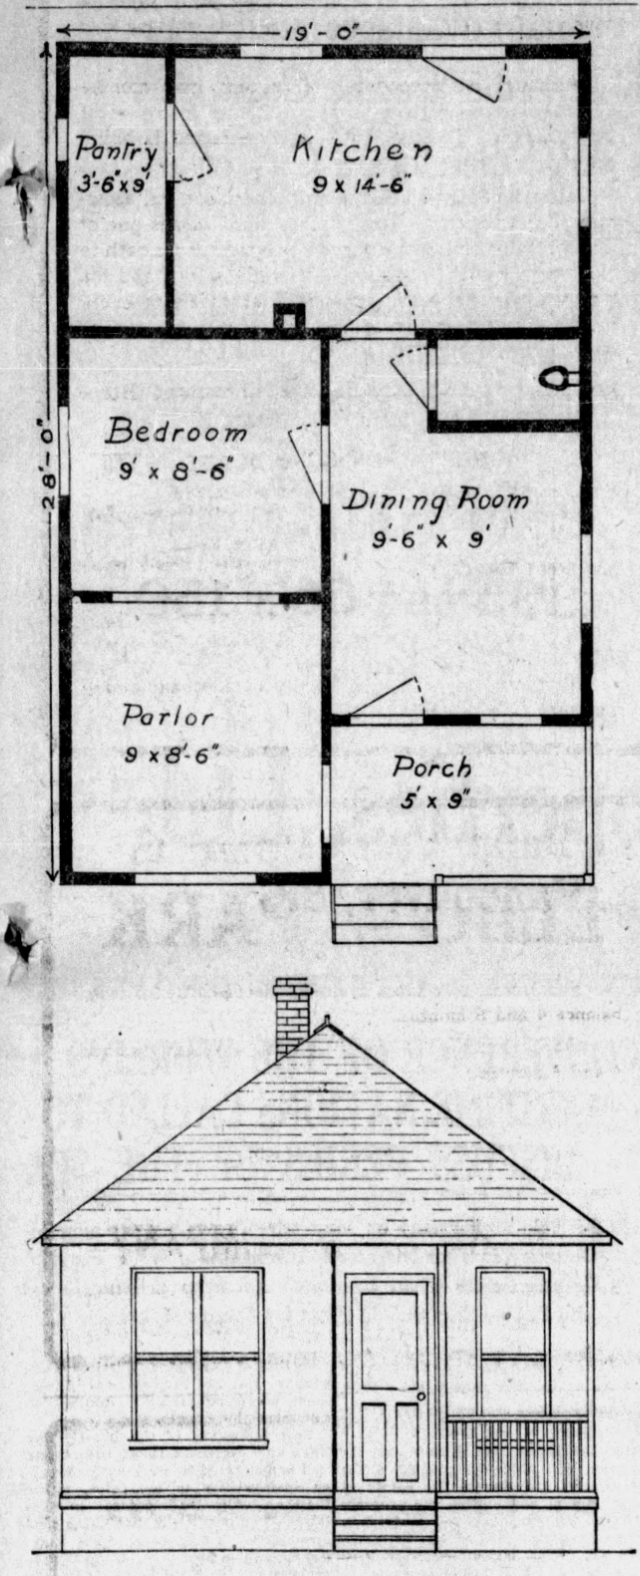 19'-0"
Pantry
3'-6"x9'
Kitchen
9 x 14'-6"
28'-0"
Bedroom
9' x 8'-6"
Dining Room
9'-6" x 9'
Parlor
9 x 8'-6"
Porch
5' x 9"